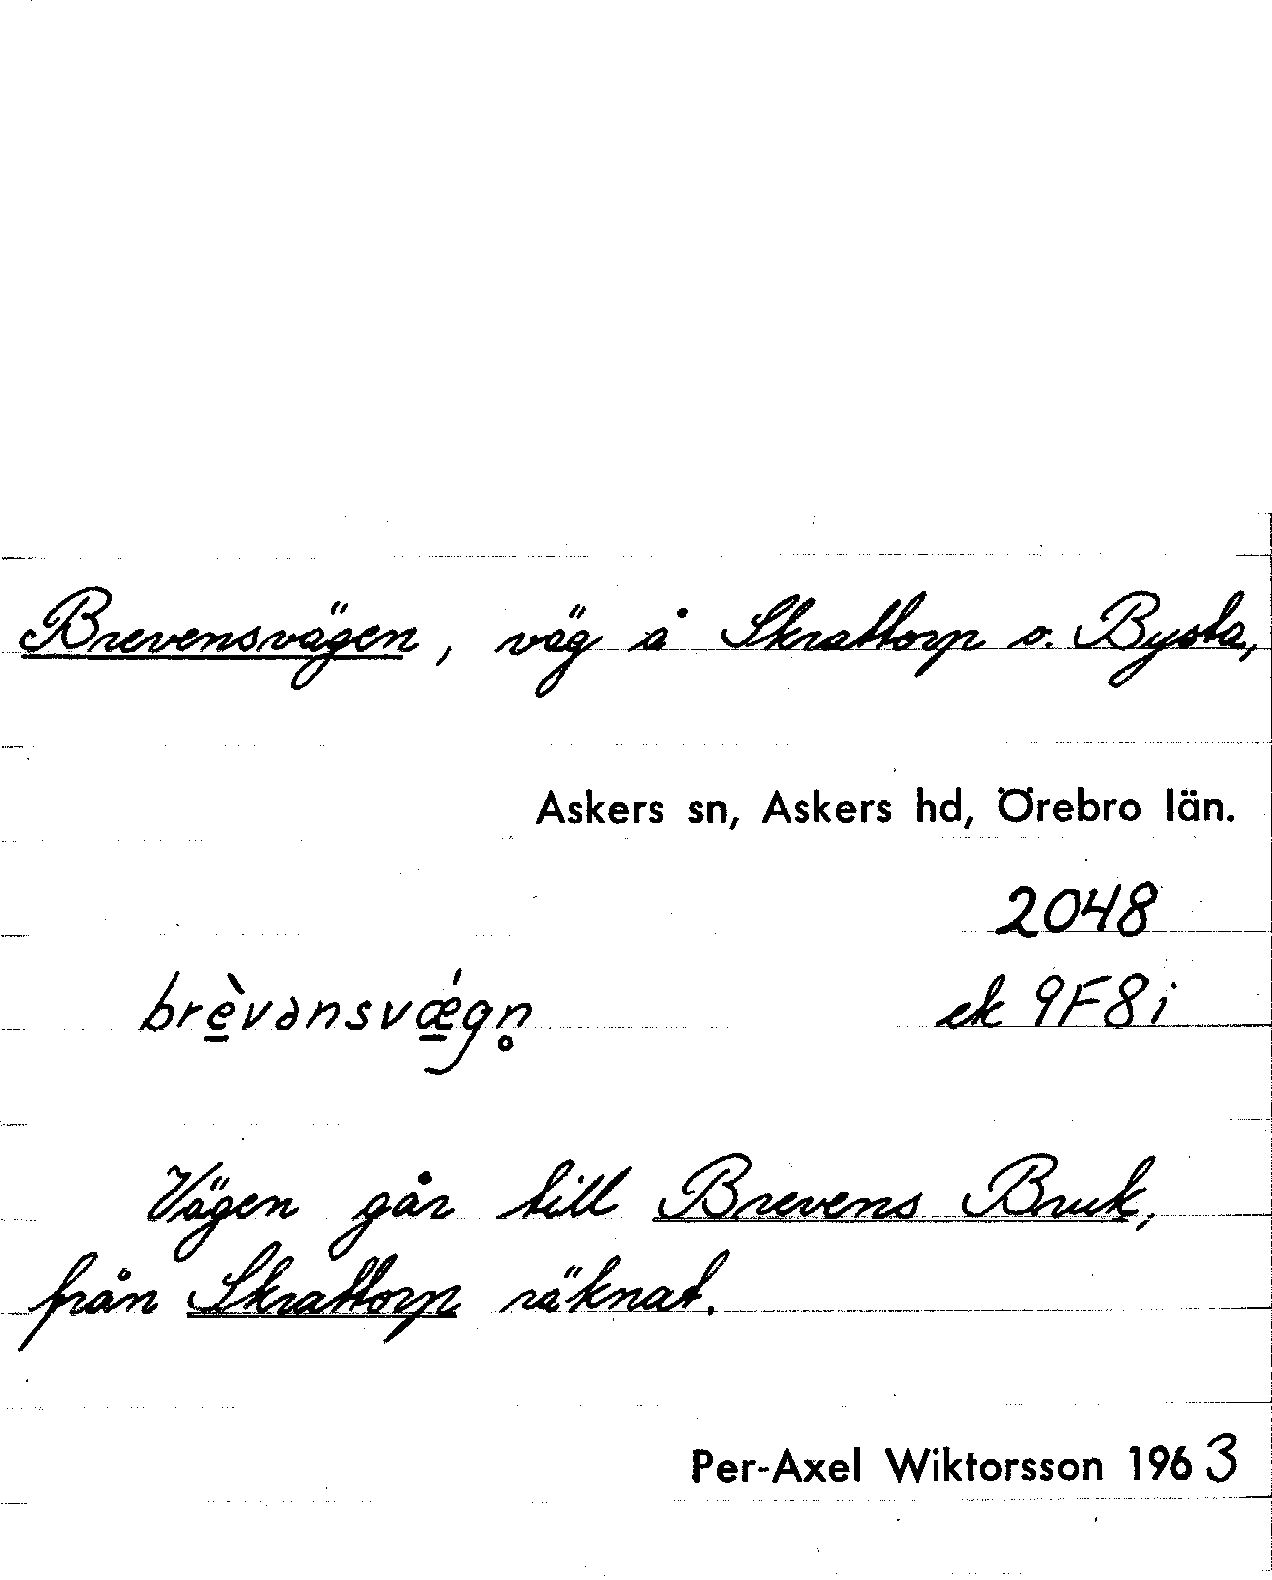 Brevensvägen, väg å Skrattorp o. Bysta,
Askers sn, Askers hd, Örebro län.
2048
brè̱vənsvǽ̱gn̥ ek 9F8i
Vägen går till Brevens Bruk,
från Skrattorp räknat.
Per-Axel Wiktorsson 1963